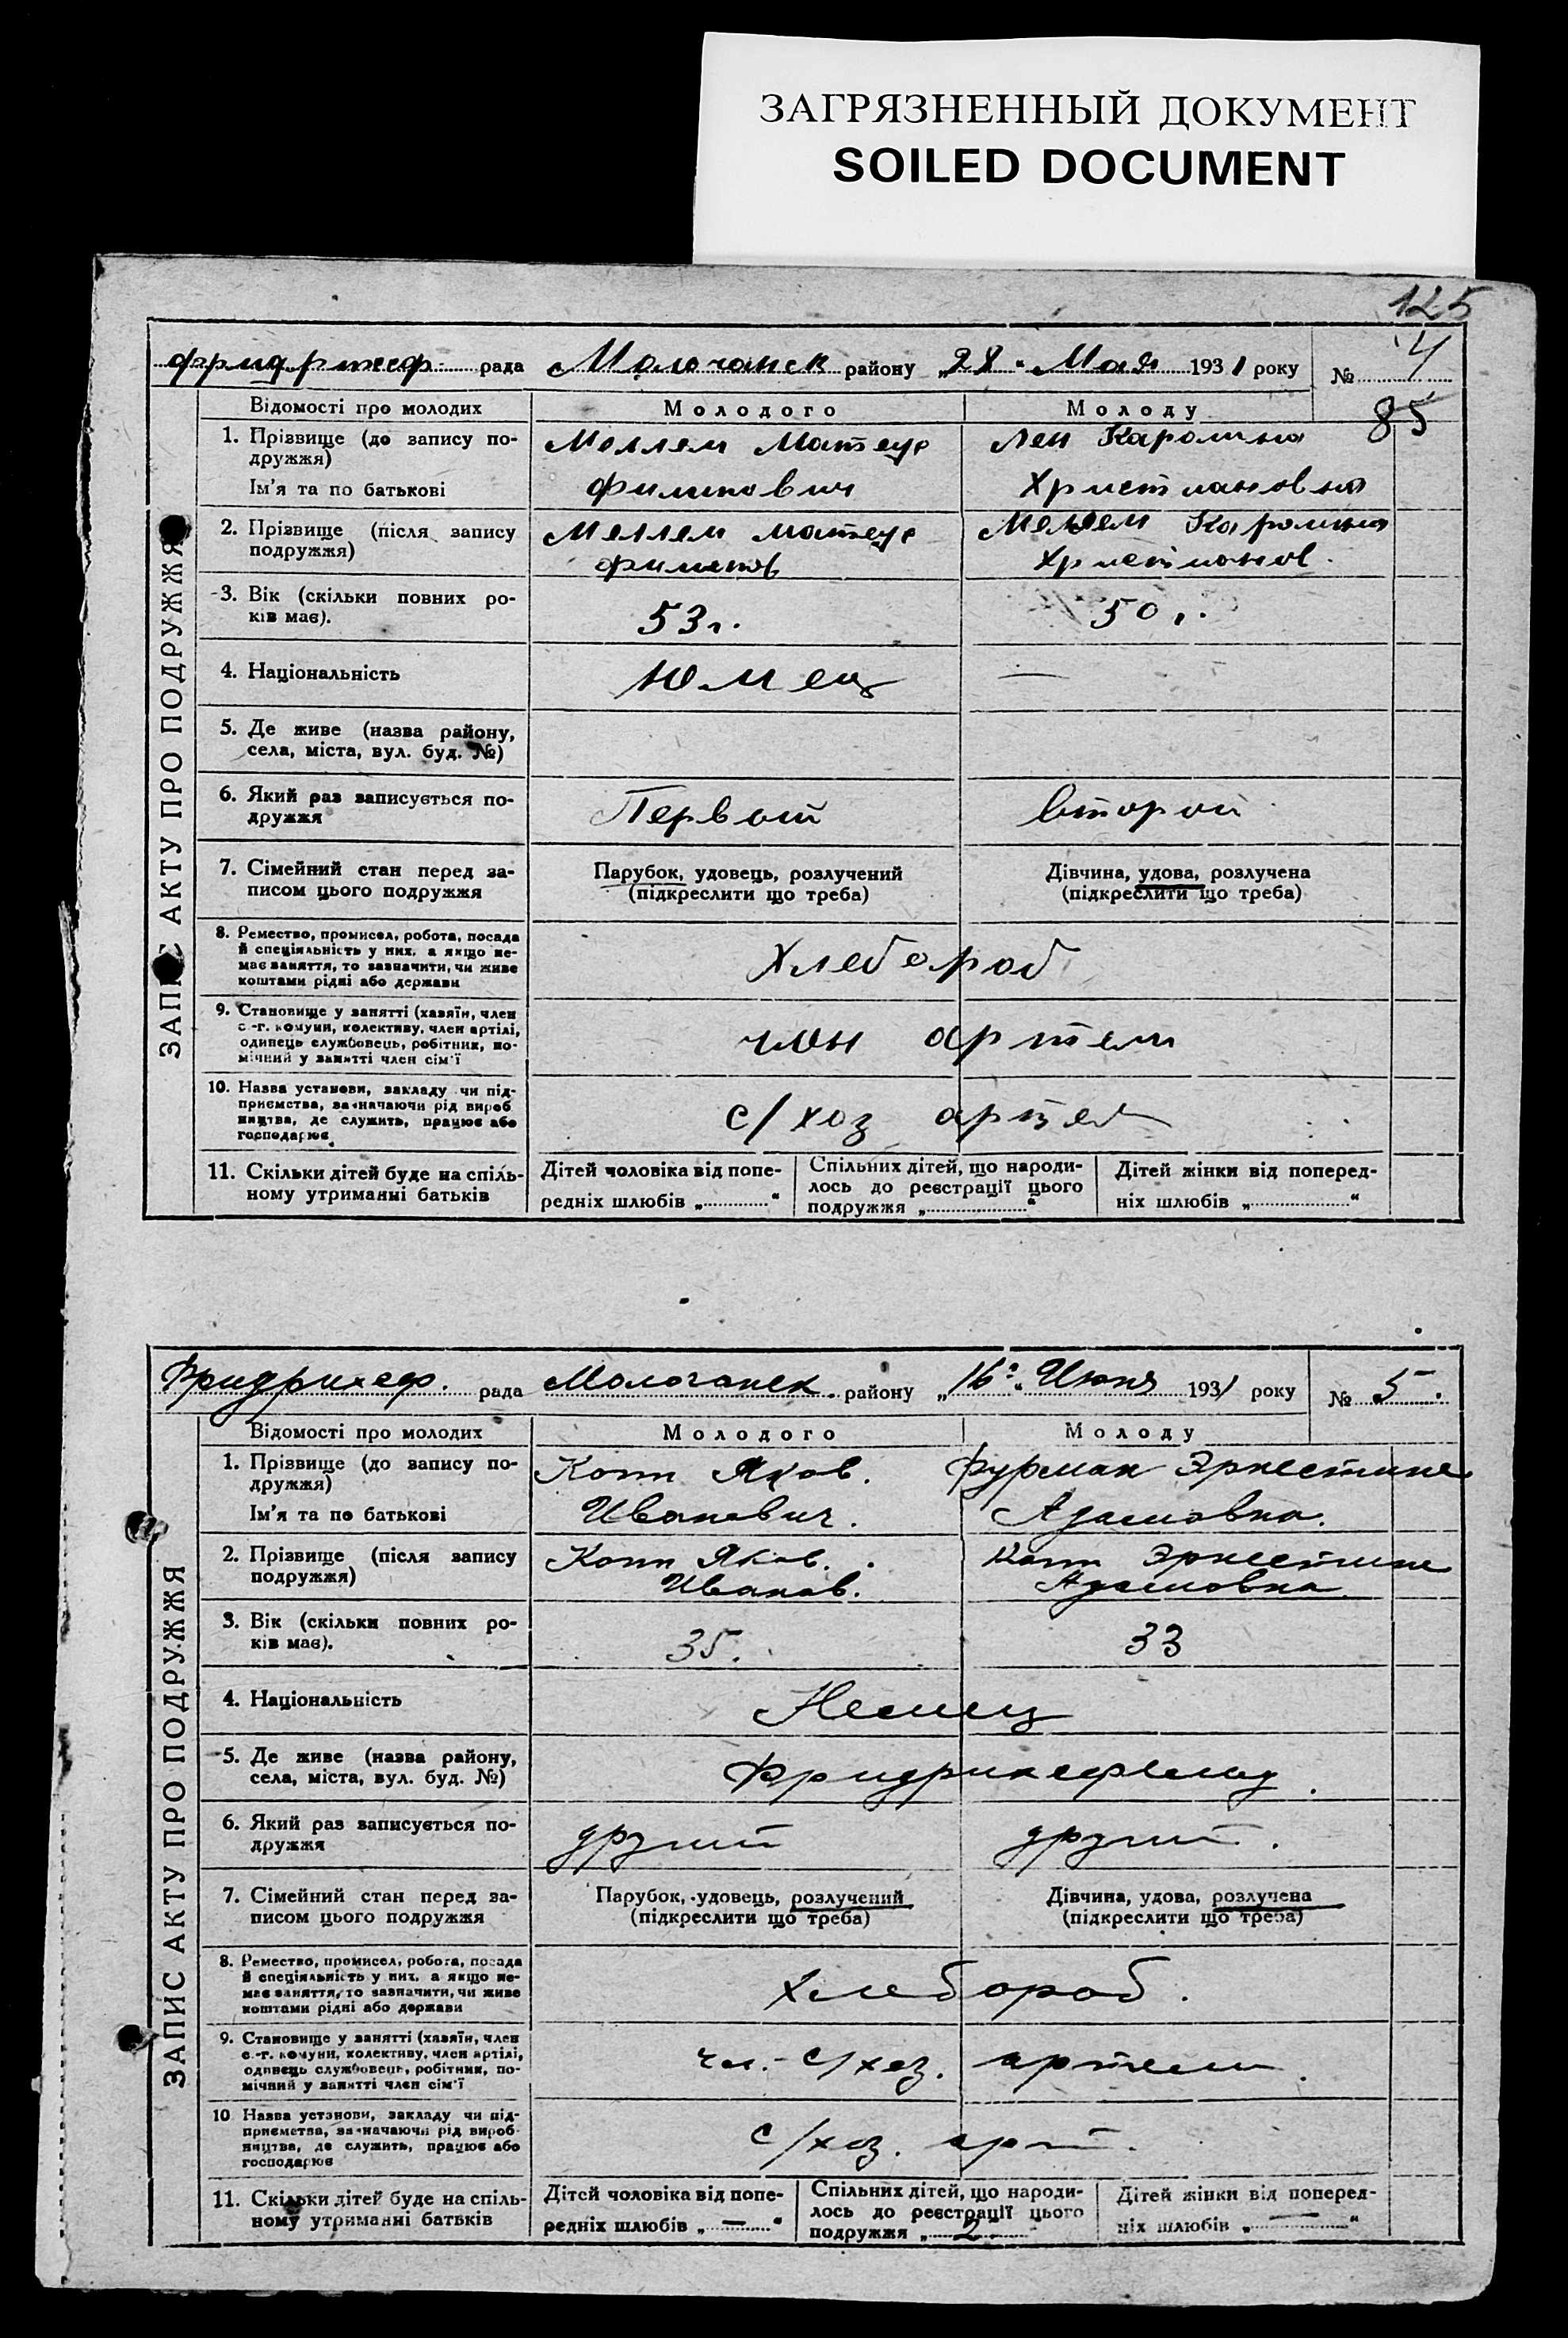 ЗАГРЯЗНЕННЫЙ ДОКУМЕНТ
SOILED DOCUMENT
125
рада Молочанск району „28“ Мая 1931 року № 4
85
ЗАПИС АКТУ ПРО ПОДРУЖЖЯ
Відомості про молодих Молодого Молоду
1. Прізвище (до запису по-
дружжя)
Меллем Матеус Лен Каролина
Ім'я та по батькові Филипович Христиановна
2. Прізвище (після запису
подружжя)
Меллем Матеус Каролина
Христианов.
3. Вік (скільки повних ро-
ків має).
53 г. 50
4. Національність —
5. Де живе (назва району,
села, міста, вул. буд. №)
6. Який раз записується по-
дружжя
Первый второй
7. Сімейний стан перед за-
писом цього подружжя
Парубок, удовець, розлучений
(підкреслити що треба)
Дівчина, удова, розлучена
(підкреслити що треба)
8. Ремество, промисел, робота, посада
й спеціяльність у них, а якщо не-
має заняття, то зазначити, чи живе
коштами рідні або держави
Хлебороб
9. Становище у занятті (хазяїн, член
с.-г. комуни, колективу, член артілі,
одинець службовець, робітник, по-
мічний у занятті член сім'ї
член артели
10. Назва установи, закладу чи під-
приємства, зазначаючи рід вироб
ництва, де служить, працює або
господарює
с/хоз артел
11. Скільки дітей буде на спіль-
ному утриманні батьків
Дітей чоловіка від попе-
редніх шлюбів „ “
Спільних дітей, що народи-
лось до реєстрації цього
подружжя „ “
Дітей жінки від поперед-
ніх шлюбів „ “
Фридрихсф. рада Молочанск. району „16“ Июня 1931 року № 5.
ЗАПИС АКТУ ПРО ПОДРУЖЖЯ
Відомості про молодих Молодого Молоду
1. Прізвище (до запису по-
дружжя)
Копп Яков. Фурман Эрнестине
Ім'я та по батькові Иванович. Адамовна.
2. Прізвище (після запису
подружжя)
Копп Яков. Копп Эрнестине
Иванов. Адамовна
3. Вік (скільки повних ро-
ків має).
35. 33
4. Національність Немец
5. Де живе (назва району,
села, міста, вул. буд. №)
Фридрихсфельд.
6. Який раз записується по-
дружжя
другий другий.
7. Сімейний стан перед за-
писом цього подружжя
Парубок, удовець, розлучений
(підкреслити що треба)
Дівчина, удова, розлучена
(підкреслити що треба)
8. Ремество, промисел, робота, посада
й спеціяльність у них, а якщо не-
має заняття, то зазначити, чи живе
коштами рідні або держави
хлебороб.
9. Становище у занятті (хазяїн, член
с.-г. комуни, колективу, член артілі,
одинець службовець, робітник, по-
мічний у занятті член сім'ї
чл. с/хоз. артели.
10 Назва установи, закладу чи під-
приємства, зазначаючи рід вироб-
ництва, де служить, працює або
господарює
с/хоз. арт.
11. Скільки дітей буде на спіль-
ному утриманні батьків
Дітей чоловіка від попе-
редніх шлюбів „—“
Спільних дітей, що народи-
лось до реєстрації цього
подружжя „2“
Дітей жінки від поперед-
ніх шлюбів „—“